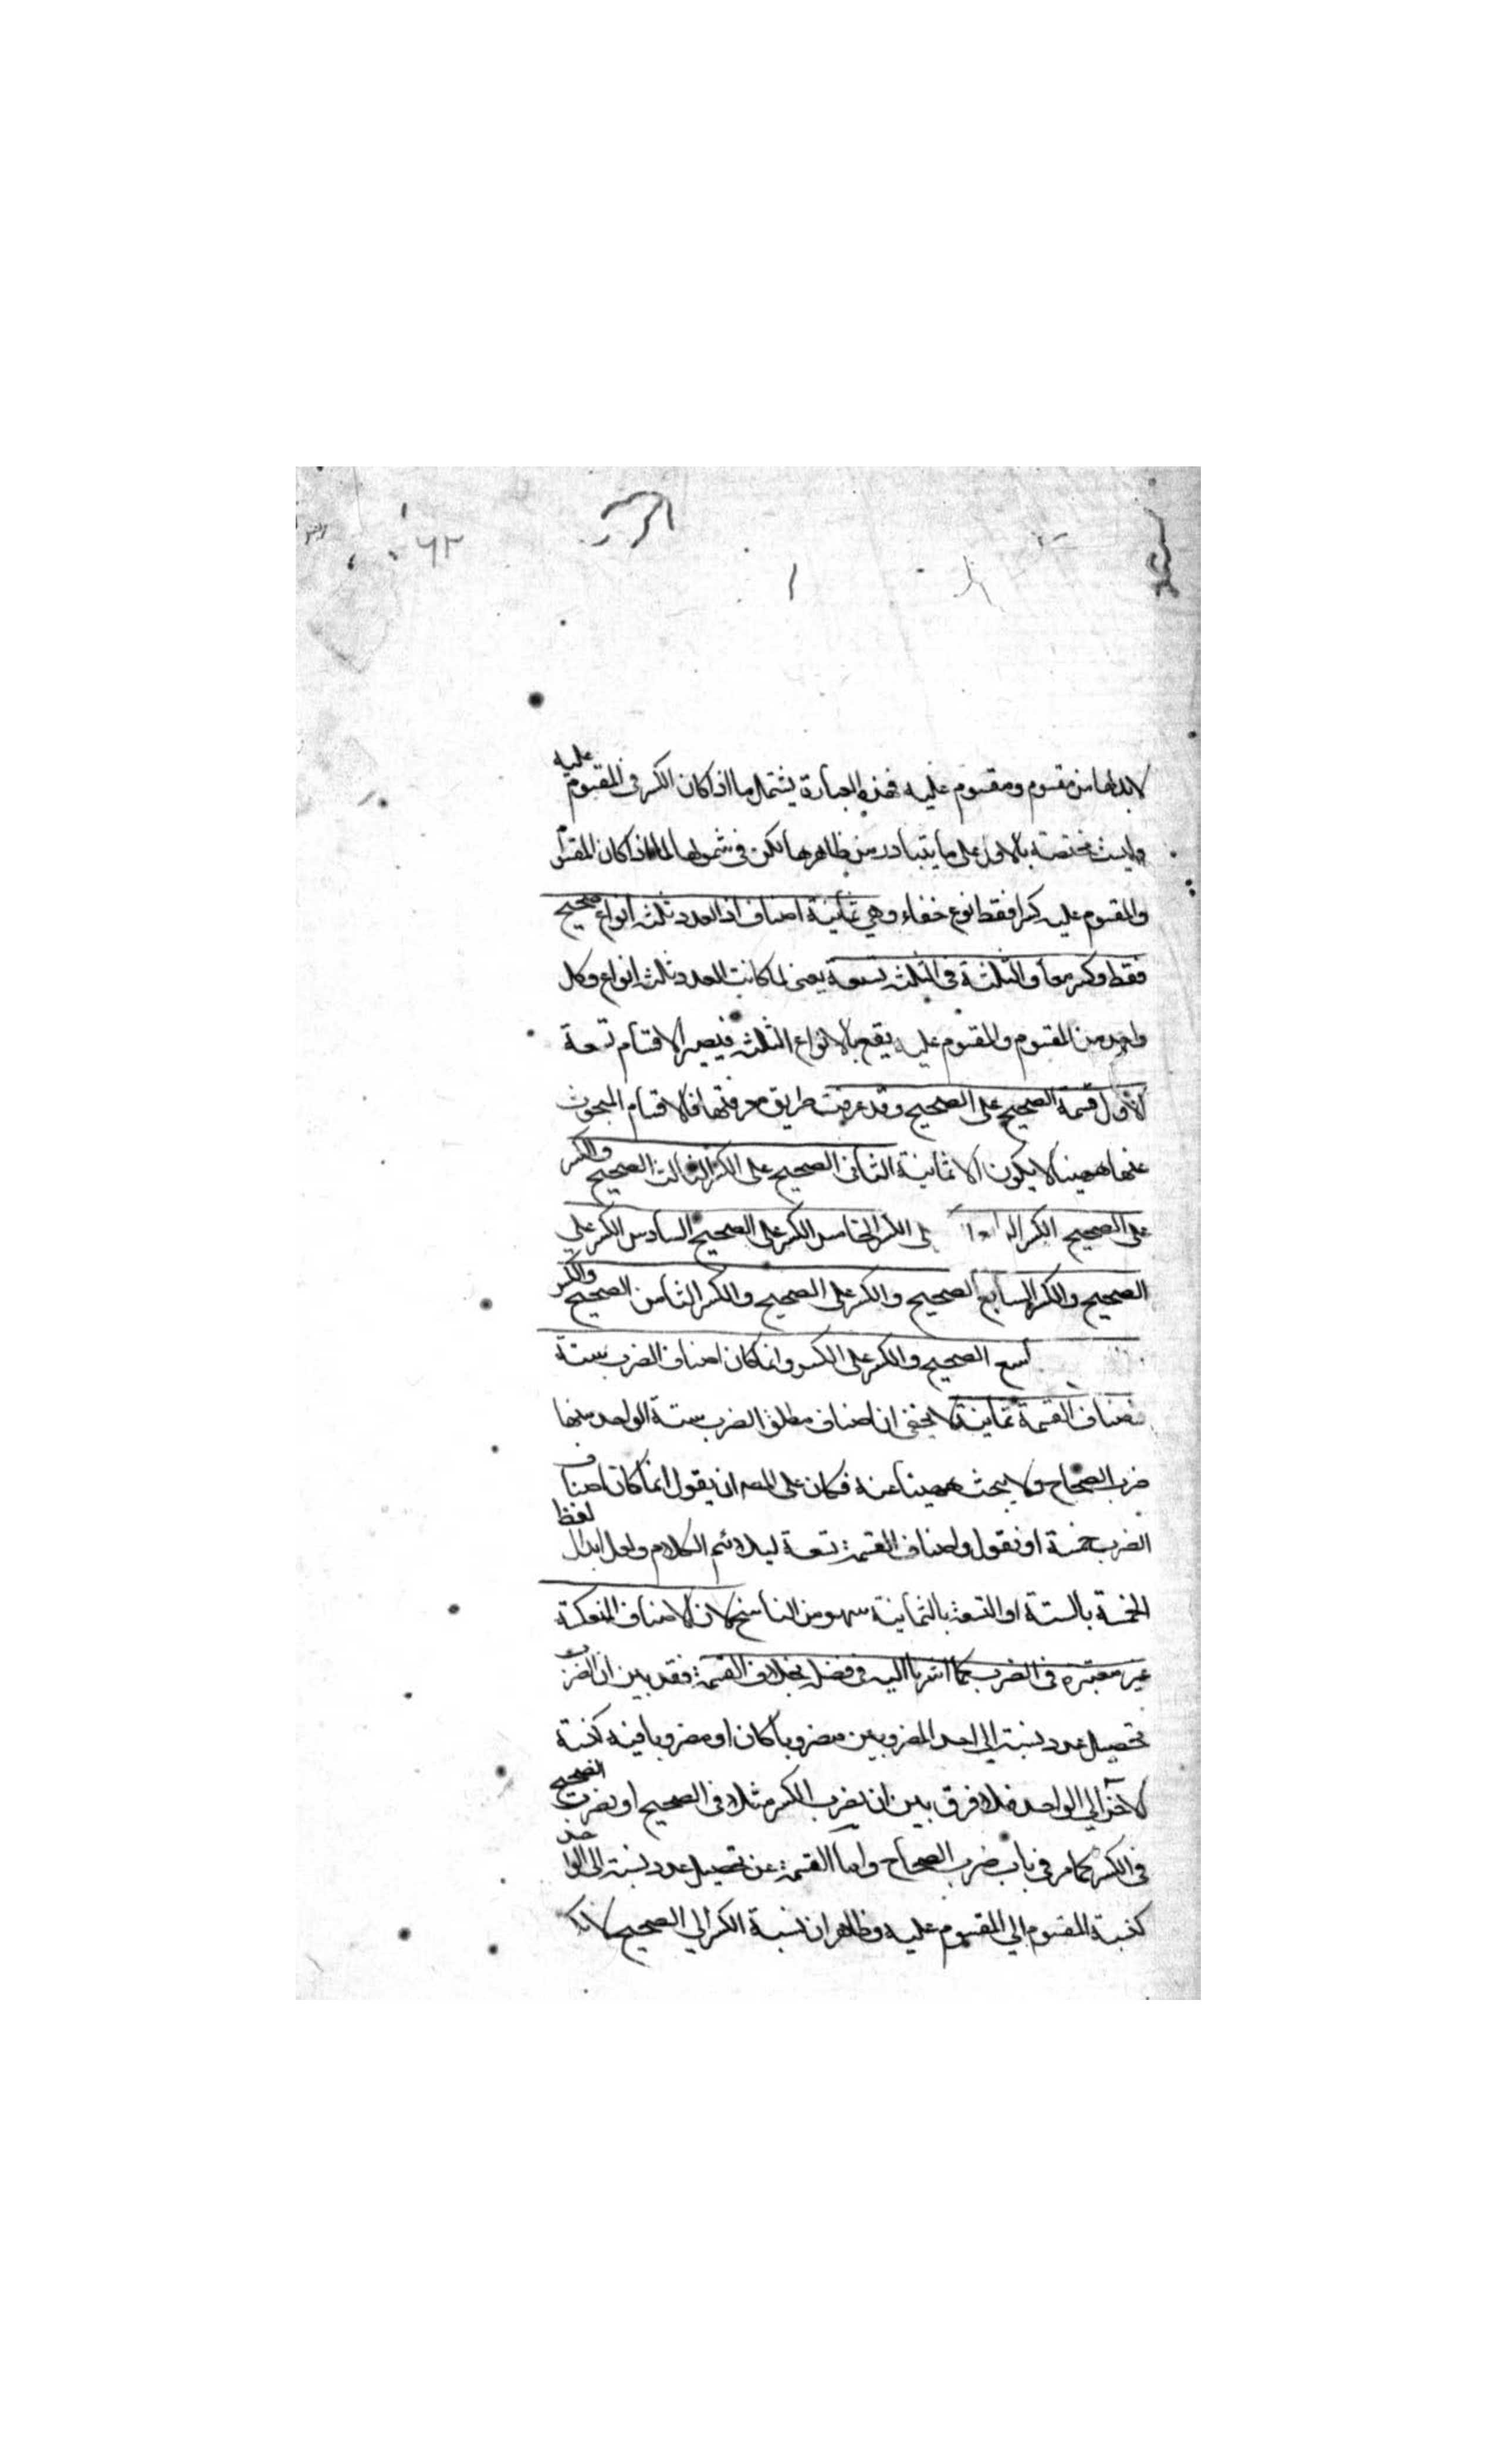 ٦٢
لابد لها من مقسوم ومقسوم عليه فهذه العبارة يشتمل ما اذا كان الكسر فى المقسوم عليه
وليست مختصة بالاول على ما يتبادر من ظاهرها لكن فى شمولها لما اذا كان المقسوم
والمقسوم عليه كسرا فقط نوع خفاء وهي ثمانية اصناف اذ العدد ثلثه انواع صحيح
فقط وكسر معا والثلثة فى الثلثه تسعة يعنى لما كانت للعدد ثلث انواع وكل
واحد من المقسوم والمقسوم عليه يقع بالانواع الثلثه فيصير الاقسام تسعة
الأول قسمة الصحيح على الصحيح وقد عرفت طريق معرفتها فالاقسام المبحوث
عنها ههينا لا يكون الا ثمانية الثانى الصحيح على الكسر الثالث الصحيح والكسر
على الصحيح الكسر على الكسر الخامس الكسر على الصحيح السادس الكسر على
الصحيح والكسر السابع الصحيح والكسر على الصحيح والكسر الثامن الصحيح والكسر
أسع الصحيح والكسر على الكسر وانما كان اصناف الضرب ستة
اصناف القسمة ثمانية لا يخفى ان اصناف مطلق الضرب ستة الواحد منها
ضرب الصحاح ولا يبحث ههينا عنه فكان على المص ان يقول انما كان اصناف
الضرب خمسة او نقول واصناف القسمة تسعة ليلائم الكلام ولعل ابدال لفظ
الخمسة بالستة او التسعة بالثمانية سهو من الناسخ لان الاصناف المنعكسة
غير معتبره فى الضرب كما اشرنا اليه فى فصله بخلاف القسمة فقد بين ان الضرب
تحصيل عدد نسبته الى احد المضروبين مضروبا كان او مضروبا فيه كنسبة
الآخر الى الواحد فلا فرق بين ان يضرب الكسر مثلا فى الصحيح او يضرب الصحيح
فى الكسر كما مر فى باب ضرب الصحاح واما القسمة عن تحصيل عدد نسبته الى الواحد
كنسبة المقسوم الى المقسوم عليه وظاهر ان نسبة الكسر الى الصحيح